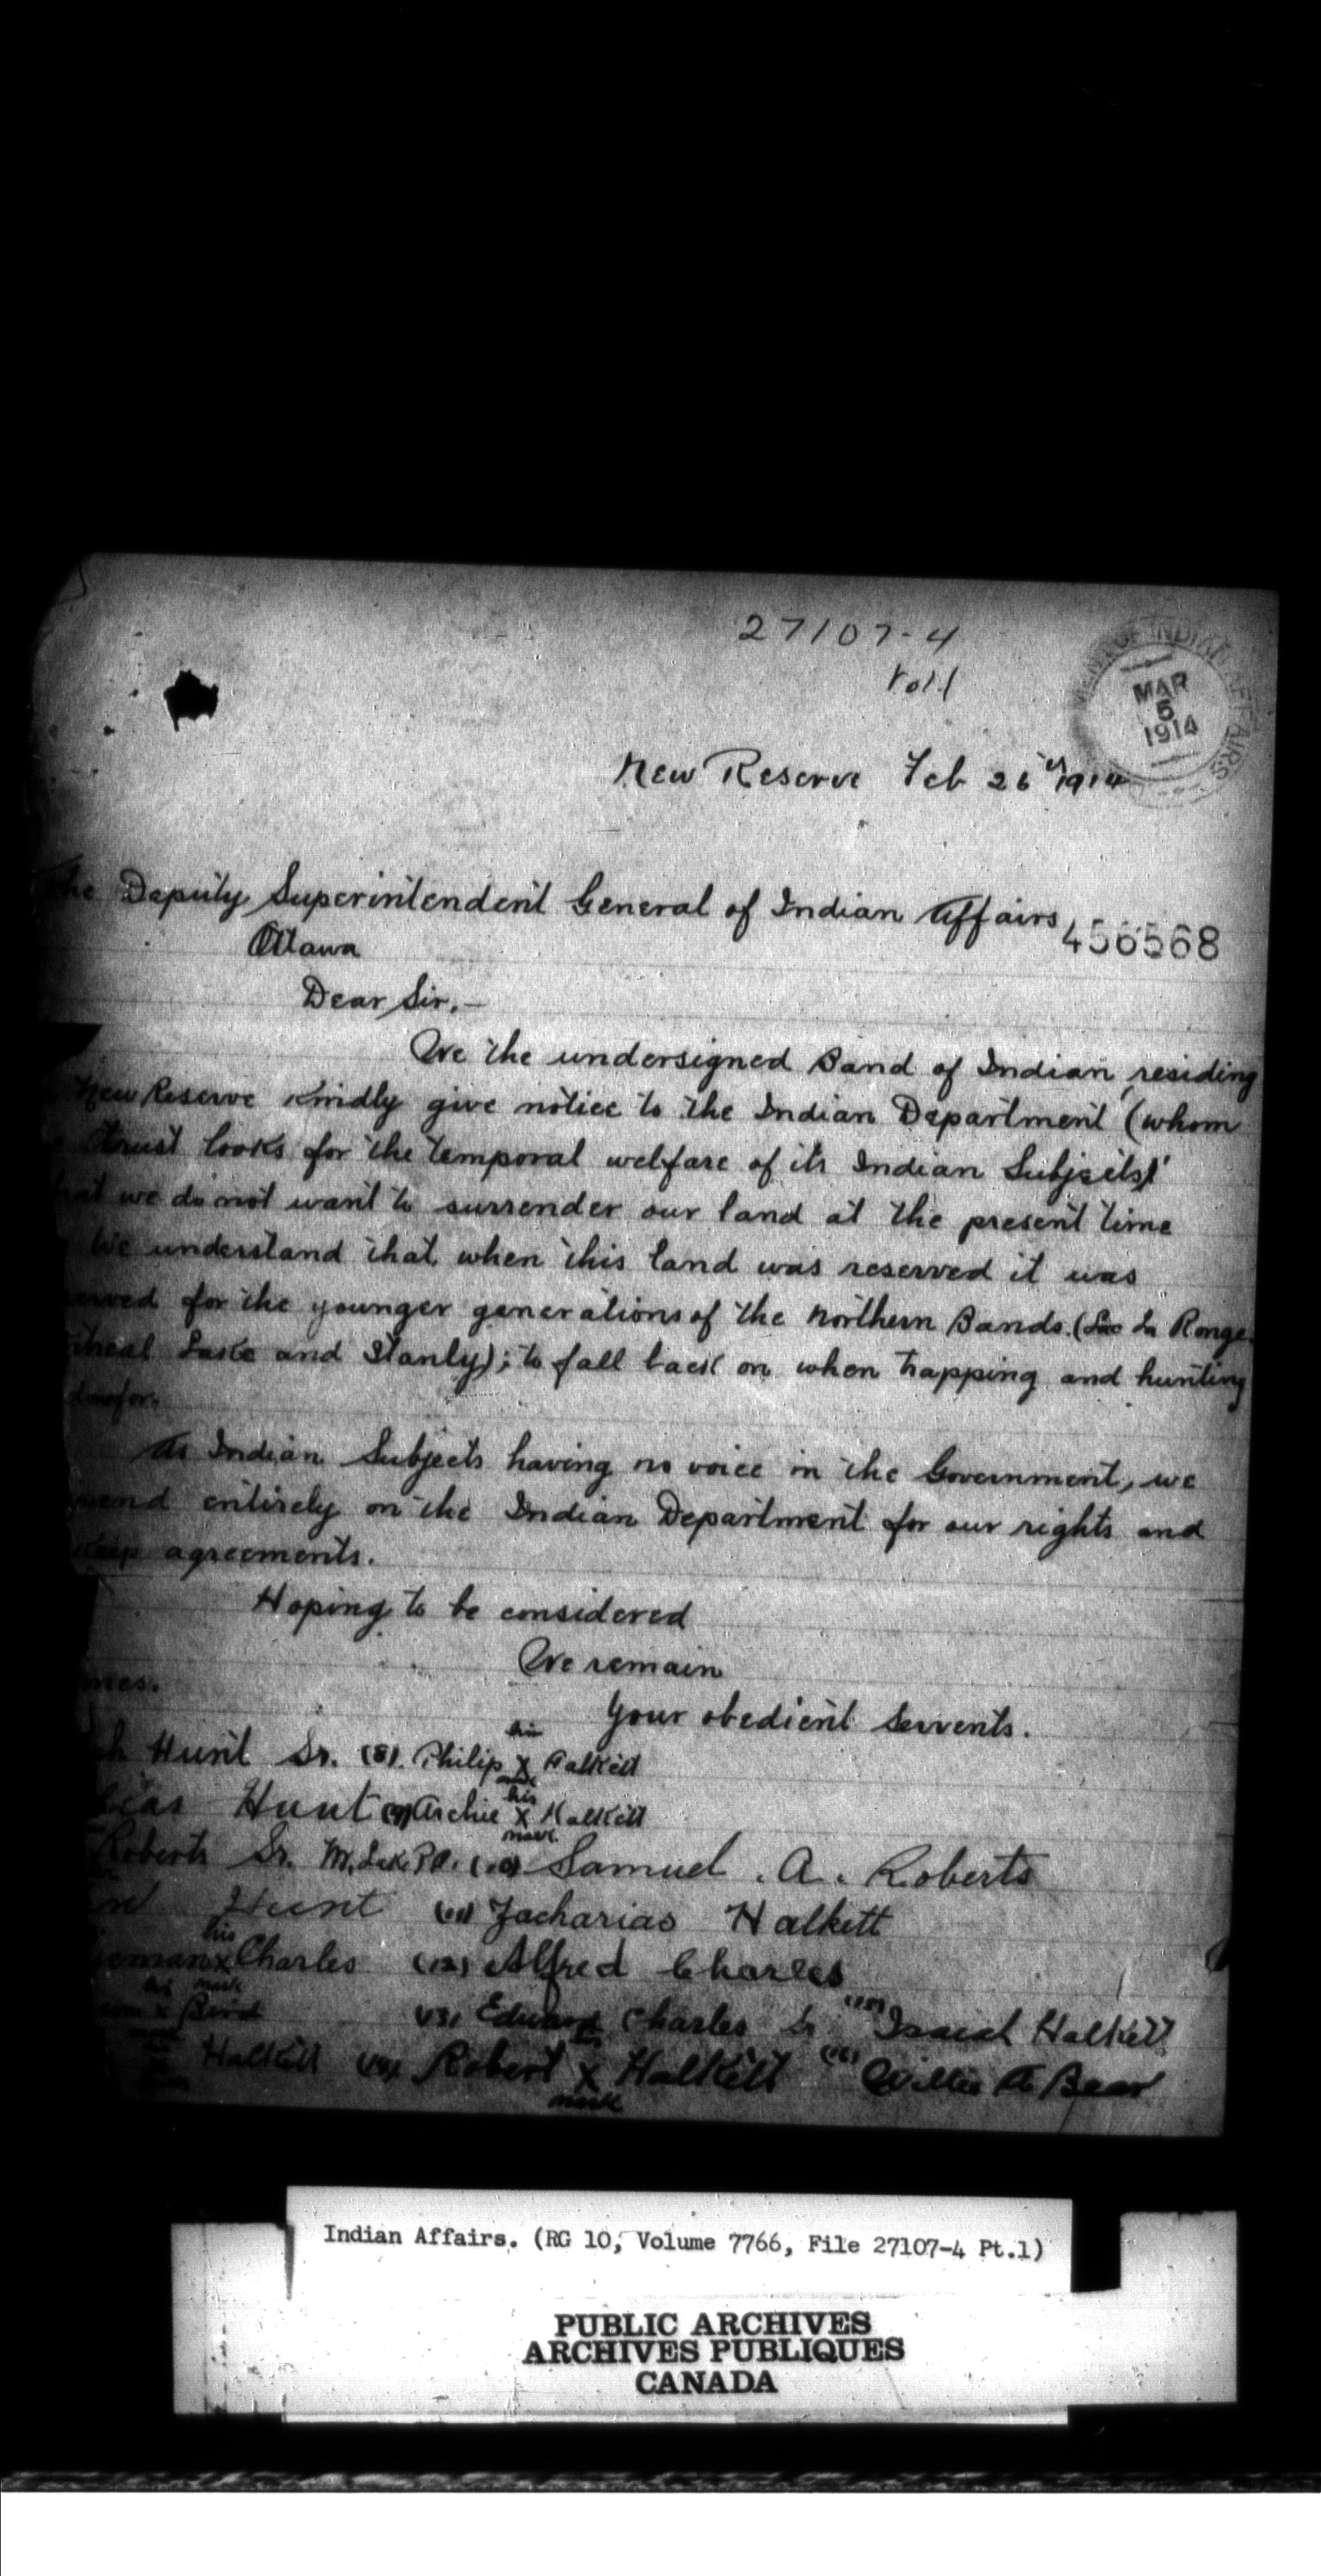 27107-4
Vol.1
DEPARTMENT OF INDIAN AFFAIRS
MAR
5
1914
New Reserve Feb 26th 1914
The Deputy Superintendent General of Indian Affairs
456568
Ottawa
Dear Sir,-
We the undersigned Band of Indian residing
New Reserve kindly give notice to the Indian Department (whom
trust looks for the temporal welfare of its Indian Subjects)
that we do not want to surrender our land at the present time
We understand that when this land was reserved it was
erved for the younger generations of the Northern Bands. (Lac La Ronge
treal Lake and Stanly); to fall back on when trapping and hunting
As Indian Subjects having no voice in the Government, we
pend entirely on the Indian Department for our rights and
keep agreements.
Hoping to be considered
We remain
mes.
Your obedient Servents.
h Hunt Sr. (8). Philip his X mark Halkett
Hunt (9) Archie his X mark Halkett
Roberts Sr. (10) Samuel . A . Roberts
Hunt (11) Zacharias Halkett
his X mark Charles (12) Alfred Charles
his X mark Bird (13) Edward Charles Sr (15) Isaiah Halkett
Halkett (14) Robert his X mark Halkett (16) Willie A Bear
Indian Affairs. (RG 10, Volume 7766, File 27107-4 Pt.1)
PUBLIC ARCHIVES
ARCHIVES PUBLIQUES
CANADA